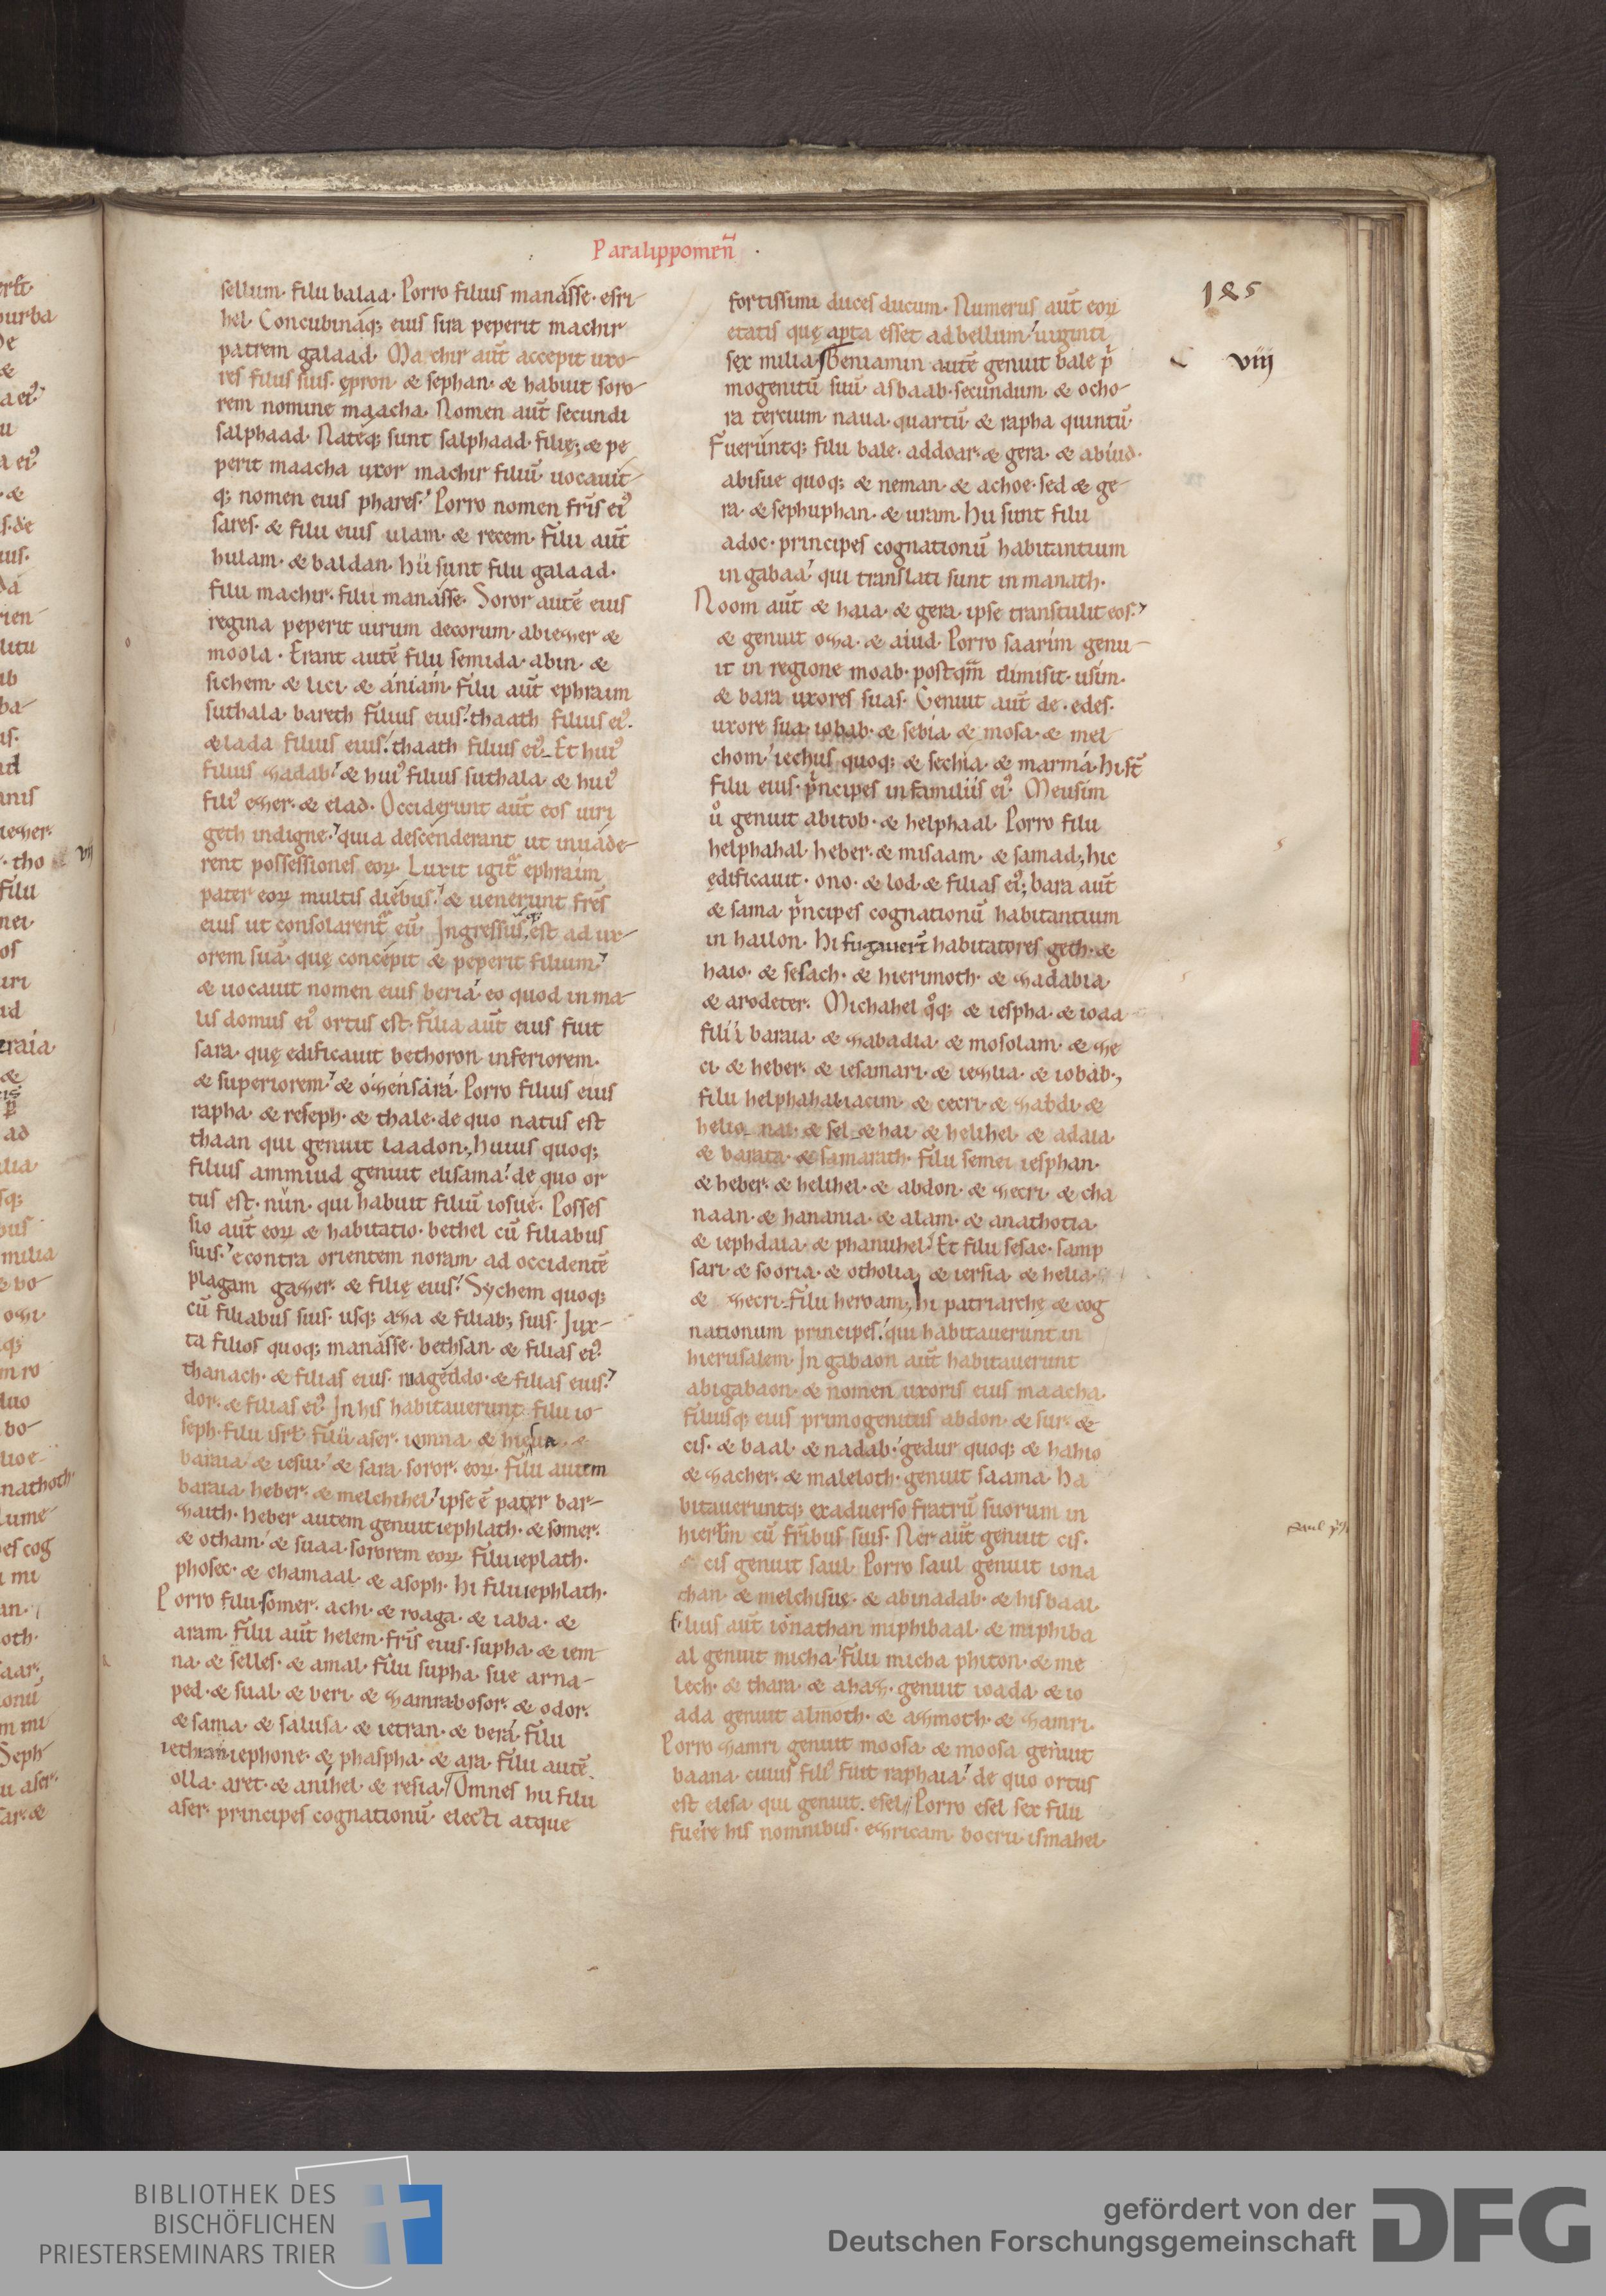 Paralippomen̄
185
sellum· filii balaa· Porro filius manasse· esri-
hel· Concubinaq; eius sira peperit machir
patrem galaad· Machir aut̄ accepit uxo-
res filiis suis· ępron· & sephan· & habuit soro-
rem nomine maacha· Nomen aut̄ secundi
salphaad· Natęq; sunt salphaad· filię; & pe
perit maacha uxor machir filiū· uocauit-
q; nomen eius phares· Porro nomen fr̄is ei᷒
sares· & filii eius ulam· & recem· filii aut̄
hulam· & baldan· hii sunt filii galaad·
filii machir· filii manasse· Soror autē eius
regina peperit uirum decorum· abiezer &
moola· Erant autē filii semida· abin· &
sichem· & lici· & aniam· filii aut̄ ephraim
suthala· bareth filius eius· thaath filius ei᷒·
& lada filius eius· thaath filius ei᷒· Et hui᷒
filius zadab· & hui᷒ filius suthala· & hui᷒
fili᷒ ezer· & elad· Occiderunt aut̄ eos uiri
geth indigne· quia descenderant ut inuade-
rent possessiones eoꝝ· Luxit igit̄ ephraim
pater eoꝝ multis diebus· & uenerunt fr̄es
eius ut consolarent̄ eū· Ingressusq; est ad ux-
orem suā· quę concepit & peperit filium·
& uocauit nomen eius beria· eo quod in ma-
lis domus ei᷒ ortus est· filia aut̄ eius fuit
sara· quę edificauit bethoron inferiorem·
& superiorem· & ozensara· Porro filius eius
rapha· & reseph· & thale· de quo natus est
thaan qui genuit laadon· huius quoq;
filius ammiud genuit elisama· de quo or
tus est· nun· qui habuit filiū iosue· Posses
sio aut̄ eoꝝ & habitatio· bethel cū filiabus
suis· & contra orientem noram· ad occidentē
plagam gazer· & filię eius· Sychem quoq;
cū filiabus suis· usq; aza & filiab; suis· Jux-
ta filios quoq; manasse· bethsan· & filias ei᷒·
thanach· & filias eius· mageddo· & filias eius·
dor· & filias ei᷒· In his habitauerunt filii io-
seph· filii isrl· filii aser· iemna· & hiesua· &
baraia· & iesui· & sara· soror· eoꝝ· filii autem
baraia· heber· & melchihel· ipse ē pater bar-
zaith· heber autem genuit iephlath· & somer·
& otham· & suaa· sororem eoꝝ· filii ieplath·
phosec· & chamaal· & asoph· hi filii iephlath·
Porro filii somer· achi· & roaga· & iaba· &
aram· filii aut̄ helem· fr̄is eius· supha· & iem-
na· & selles· & amal· filii supha· sue arna-
ped· & sual· & beri· & zamra· bosor· & odor·
& sama· & salusa· & ietran· & bera· filii
iethran· iephone· & phaspha· & ara· filii autē
olla· aret· & anihel· & resia· Omnes hii filii
aser· principes cognationū· electi atque
fortissimi duces ducum· Numerus aut̄ eoꝝ
etatis quę apta esset ad bellum· uiginti
sex milia· Beniamin autē genuit bale p̄
mogenitū suū· asbaab· secundum· & ocho-
ra tercium· naua· quartū· & rapha quintū·
Fueruntq; filii bale· addoar· & gera· & abiud·
abisue quoq; & neman· & achoe· sed & ge-
ra· & sephuphan· & uram· Hii sunt filii
adoc· principes cognationū habitantium
in gabaa· qui translati sunt in manath·
Noom aut̄ & haia· & gera· ipse transtulit eos·
& genuit oza· & aiud· Porro saarim genu-
it in regione moab· postqm̄ dimisit· usim·
& bara uxores suas· Genuit aut̄ de· edes·
uxore sua· iobab· & sebia· & mosa· & mel
chom· iechus quoq; & sechia· & marma· hi st̄
filii eius· p̄ncipes in familiis ei᷒· Meusim
ů genuit abitob· & helphaal· Porro filii
helphahal· heber· & misaam· & samad· hic
ędificauit· ono· & lod· & filias ei᷒; bara aut̄
& sama· p̄ncipes cognationū habitantium
in hailon· Hi fugauert̄ habitatores geth· &
haio· & sesach· & hierimoth· & zadabia·
& arodeter· Michahel qͦq; & iespha· & ioaa
filii baraia· & zabadia· & mosolam· & ze
ci· & heber· & iesamari· & iezlia· & iobab·
filii helphahal· iacim· & cecri· & zabdi· &
helio nai· & sel & hai· & helihel· & adaia·
& baraia· & samarath· filii semei· iesphan·
& heber· & helihel· & abdon· & zecri· & cha
naan· & hanania· & alam· & anathotia·
& iephdaia· & phanuhel· Et filii sesac· samp
sari· & sooria· & otholia· & iersia· & helia·
& zecri· filii heroam· hi patriarchę & cog
nationum principes· qui habitauerunt in
hierusalem· In gabaon aut̄ habitauerunt
abigabaon· & nomen uxoris eius maacha·
filiusq; eius primogenitus abdon· & sur· &
cis· & baal· & nadab· gedur quoq; & hahio
& zacher· & maleloth· genuit saama· Ha
bitaueruntq; exaduerso fratrū suorum in
hierlm̄ cū fr̄ibus suis· Ner aut̄ genuit cis·
& cis genuit saul· Porro saul genuit iona
than· & melchisue· & abinadab· & hisbaal·
Filius aut̄ ionathan miphibaal· & miphiba
al genuit micha· filii micha phiton· & me
lech· & thara· & ahaz· genuit ioada· & io
ada genuit almoth· & azmoth· & zamri·
Porro zamri genuit moosa· & moosa genuit
baana· cuius fili᷒ fuit raphaia· de quo ortus
est elesa· qui genuit esel· Porro esel sex filii
fuere his nomnibus· ezricam· bocru· ismahel·
viij
vij
BIBLIOTHEK DES
BISCHÖFLICHEN
PRIESTERSEMINARS TRIER
gefördert von der
Deutschen Forschungsgemeinschaft
DFG